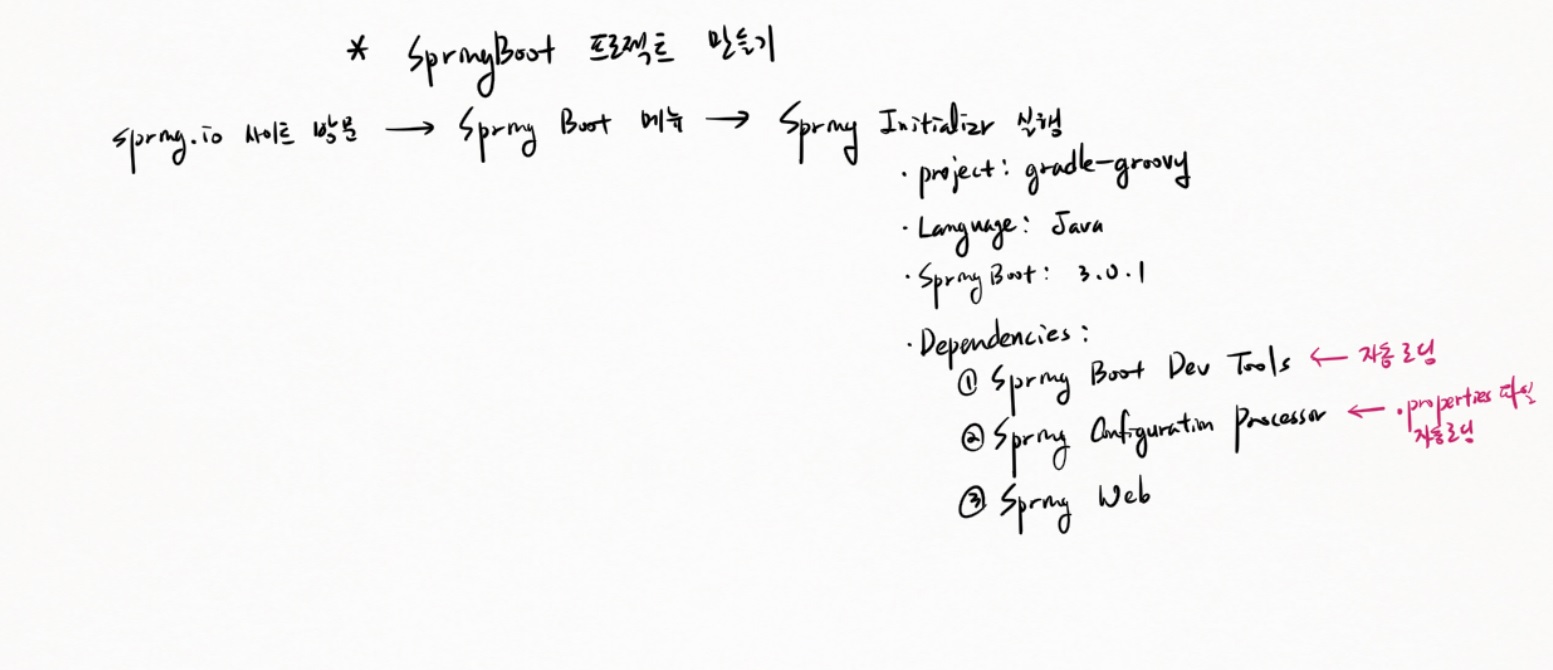 * SpringBoot 프로젝트 만들기
spring.io 사이트 방문 → Spring Boot 메뉴 → Spring Initializr 실행
· project: gradle-groovy
· Language: Java
· Spring Boot: 3.0.1
· Dependencies:
① Spring Boot Dev Tools ← 자동로딩
② Spring Configuration Processor ← .properties 파일
자동로딩
③ Spring Web